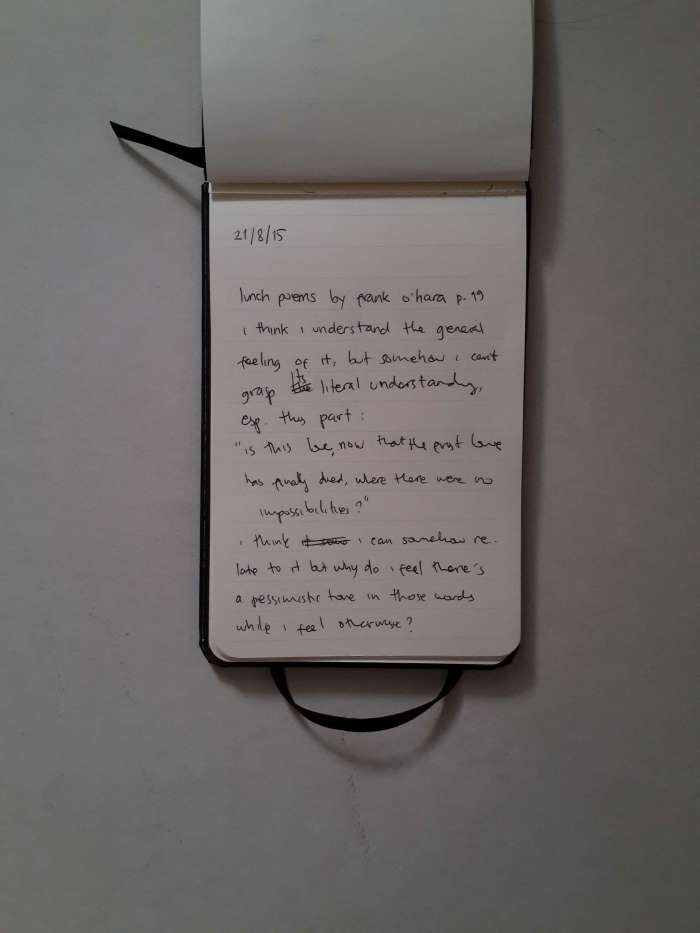 21/8/15
lunch poems by frank o'hara p. 19
i think i understand the general
feeling of it, but somehow i can't
grasp its literal understanding,
esp. this part:
"is this love, now that the first love
has finally died, where there were no
impossibilities?"
i think i can somehow re-
late to it but why do i feel there's
a pessimistic tone in those words
while i feel otherwise?